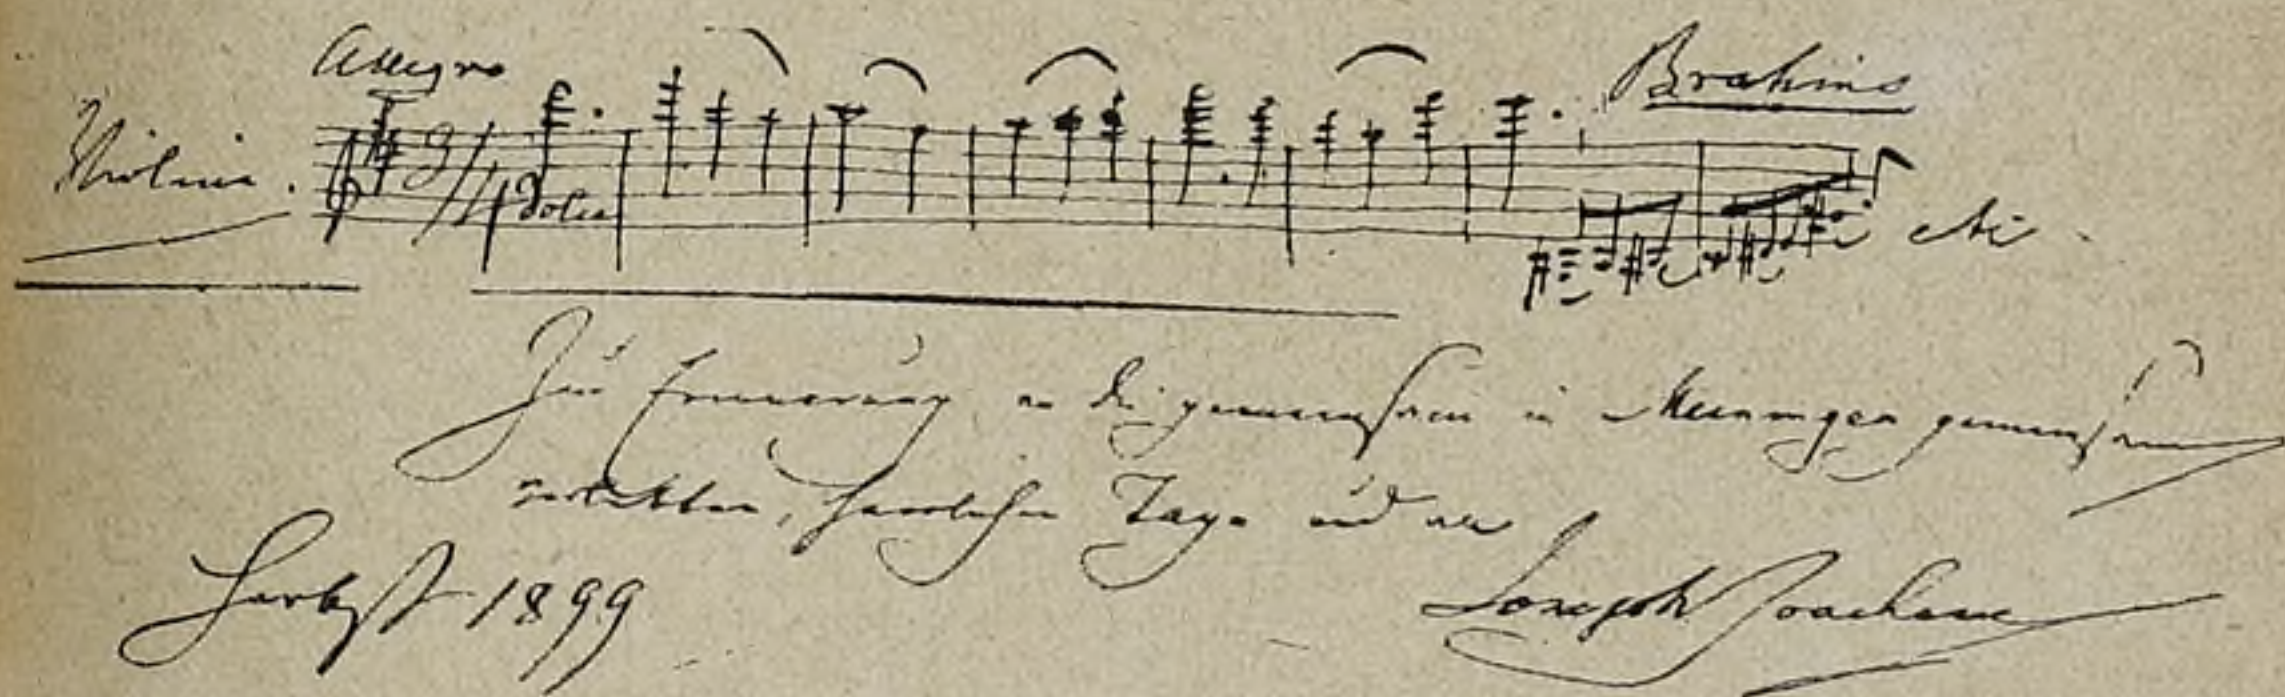 Allegro
Brahms
Violine.
3/4 dolce
etc
Zur Erinnerung an die gemeinsam in Meiningen gemeinsam
verlebten, herrlichen Tage und an
Herbst 1899
Joseph Joachim